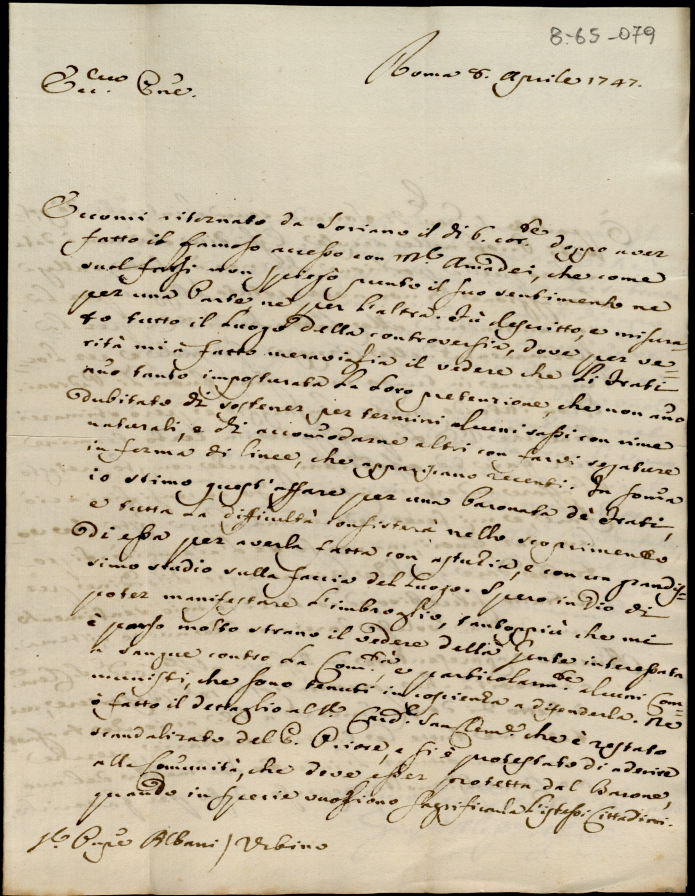 8-65-079
Roma 8. Aprile 1747.
Ecc.mo P̃ne.
Eccomi ritornato da Soriano il dì 6. cor.te doppo aver
fatto il famoso accesso con M.r Amadei, che come
suol farsi non spiegò punto il suo sentimento ne
per una Parte ne per l'altra. Fù descritto, e misura-
to tutto il Luogo della controversia, dove per ve=
rità mi à fatto meraviglia il vedere che li Frati
ano tanto imposturata la Loro pretenzione, che non ano
dubitato di sostener per termini alcuni sassi con vime
naturali, e di accomodarne altri con farvi segature
in forma di linee, che appariscano recenti. In soma
io stimo quest'affare per una baronata de Frati,
e tutta la difficultà consisterà nello scoprimento
di essa per averla fatta con astuzia, e con un grandis-
simo studio sulla faccia del Luogo. Spero in Dio di
poter manifestare l'imbroglio, tantoppiù che mi
è parso molto strano il vedere della Gente interessata
a sangue contro la Com.tà, e particolarm.te alcuni Com=
munisti, che sono tenuti in coscienza a difenderla. Ne
ò fatto il dettaglio al S.r Card. San Clem.e che è restato
scandalizato del P. Priore, e si è protestato di aderire
alla Comunità, che dove esser protetta dal Barone,
quando in specie vogliono sagrificarla l'istessi Cittadini.
Pñpe Albani / Urbino